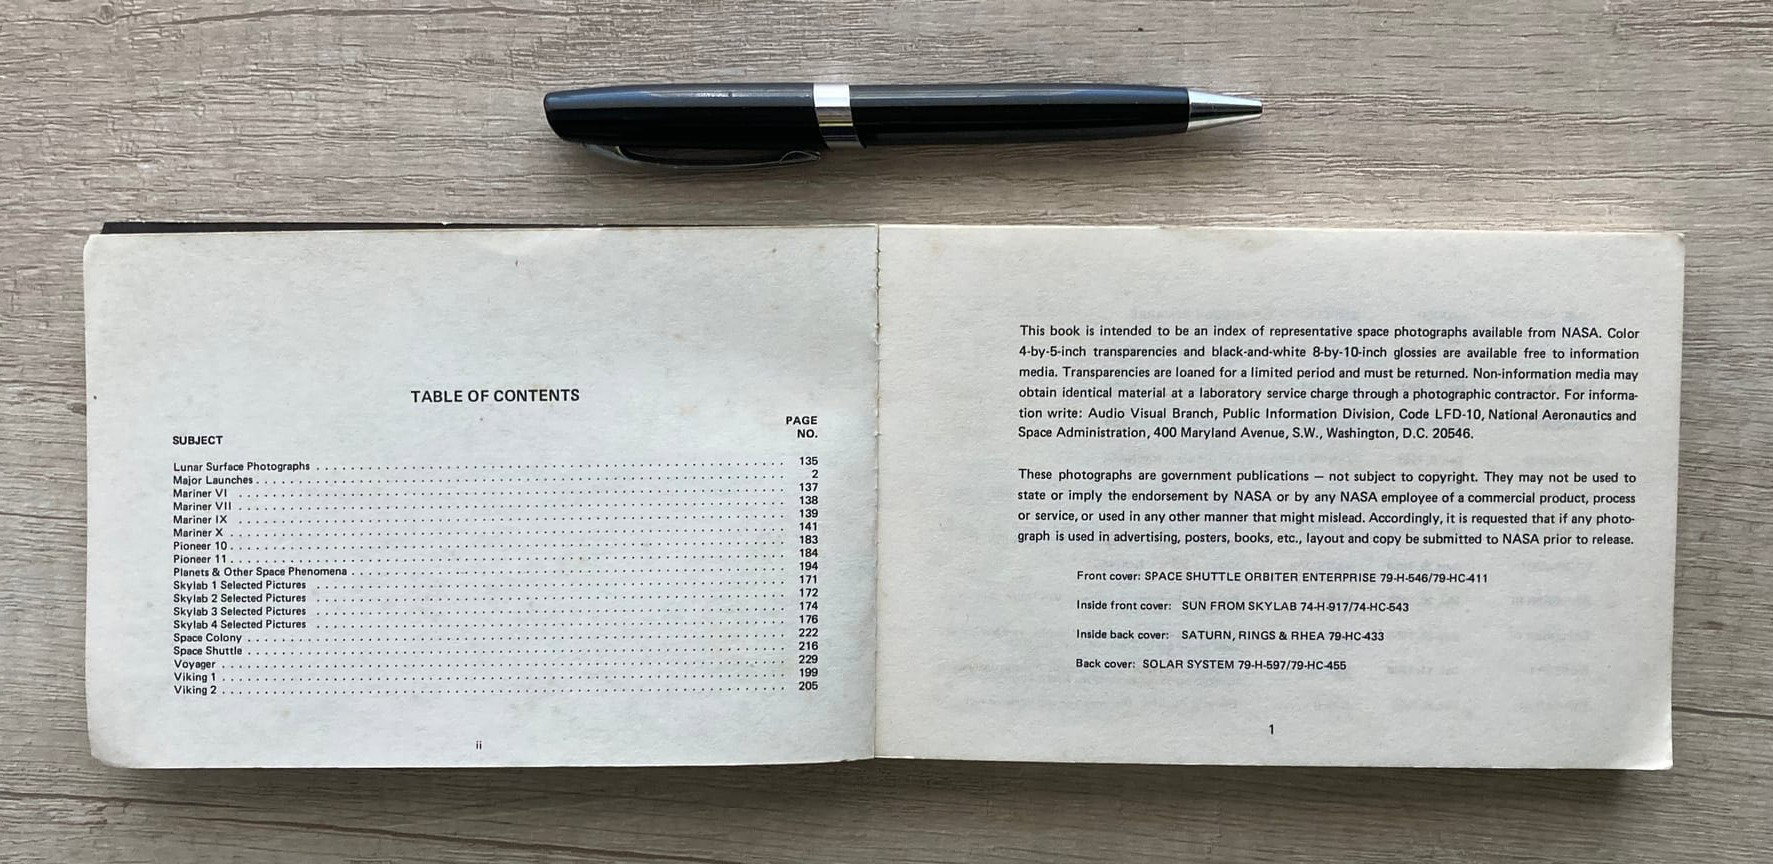 TABLE OF CONTENTS
PAGE
SUBJECT NO.
Lunar Surface Photographs 135
Major Launches 2
Mariner VI 137
Mariner VII 138
Mariner IX 139
Mariner X 141
Pioneer 10 183
Pioneer 11 184
Planets & Other Space Phenomena 194
Skylab 1 Selected Pictures 171
Skylab 2 Selected Pictures 172
Skylab 3 Selected Pictures 174
Skylab 4 Selected Pictures 176
Space Colony 222
Space Shuttle 216
Voyager 229
Viking 1 199
Viking 2 205
ii
This book is intended to be an index of representative space photographs available from NASA. Color
4-by-5-inch transparencies and black-and-white 8-by-10-inch glossies are available free to information
media. Transparencies are loaned for a limited period and must be returned. Non-information media may
obtain identical material at a laboratory service charge through a photographic contractor. For informa-
tion write: Audio Visual Branch, Public Information Division, Code LFD-10, National Aeronautics and
Space Administration, 400 Maryland Avenue, S.W., Washington, D.C. 20546.
These photographs are government publications — not subject to copyright. They may not be used to
state or imply the endorsement by NASA or by any NASA employee of a commercial product, process
or service, or used in any other manner that might mislead. Accordingly, it is requested that if any photo-
graph is used in advertising, posters, books, etc., layout and copy be submitted to NASA prior to release.
Front cover: SPACE SHUTTLE ORBITER ENTERPRISE 79-H-546/79-HC-411
Inside front cover: SUN FROM SKYLAB 74-H-917/74-HC-543
Inside back cover: SATURN, RINGS & RHEA 79-HC-433
Back cover: SOLAR SYSTEM 79-H-597/79-HC-455
1